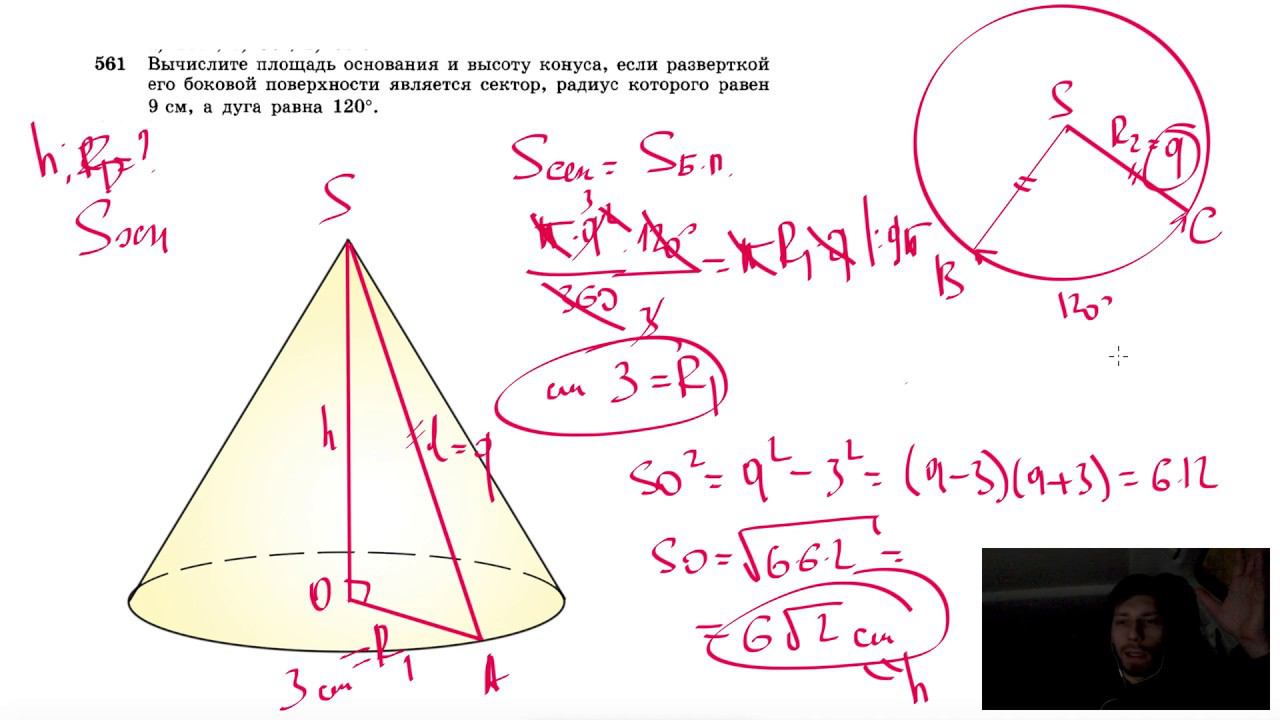 561 Вычислите площадь основания и высоту конуса, если разверткой
его боковой поверхности является сектор, радиус которого равен
9 см, а дуга равна 120°.
h;
Sосн
S
h
l=9
O
3 см = R₁
A
Sсек = Sб.п.
π·9²·120° / 360 = πR₁·9 |:9π
3
3
см 3 = R₁
S
R₂=9
B
C
120°
SO² = 9² − 3² = (9−3)(9+3) = 6·12
SO = √6·6·2 =
= 6√2 см
h